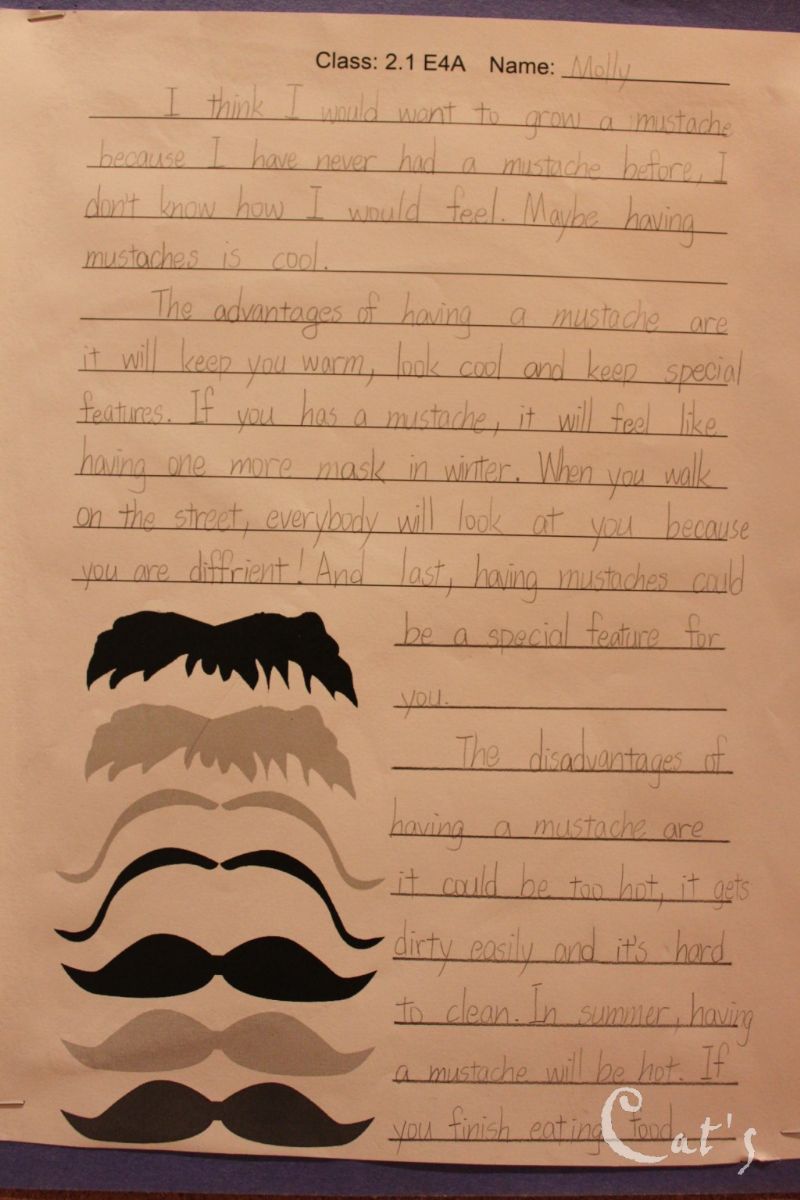 Class: 2.1 E4A Name: Molly
I think I would want to grow a mustache
because I have never had a mustache before, I
don't know how I would feel. Maybe having
mustaches is cool.
The advantages of having a mustache are
it will keep you warm, look cool and keep special
features. If you has a mustache, it will feel like
having one more mask in winter. When you walk
on the street, everybody will look at you because
you are diffrient! And last, having mustaches could
be a special feature for
you.
The disadvantages of
having a mustache are
it could be too hot, it gets
dirty easily and it's hard
to clean. In summer, having
a mustache will be hot. If
you finish eating food
Cat's